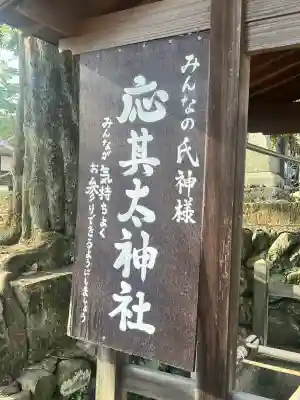 みんなの氏神様
応其太神社
みんなが気持ちよく
お参りできるようにしましょう